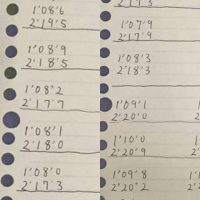 1'08'6
2'19'5
1'08'9
2'18'5
1'08'2
2'17'7
1'08'1
2'18'0
1'08'0
2'17'3
2'17'3
1'07'9
2'17'9
1'08'3
2'18'3
1'09'1
2'20'0
1'10'0
2'20'9
1'09'8
2'20'2